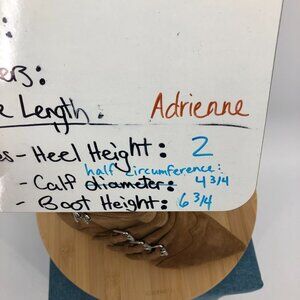 ers:
e Length: Adrienne
es - Heel Height: 2
half circumference:
- Calf diameter: 4 3/4
- Boot Height: 6 3/4